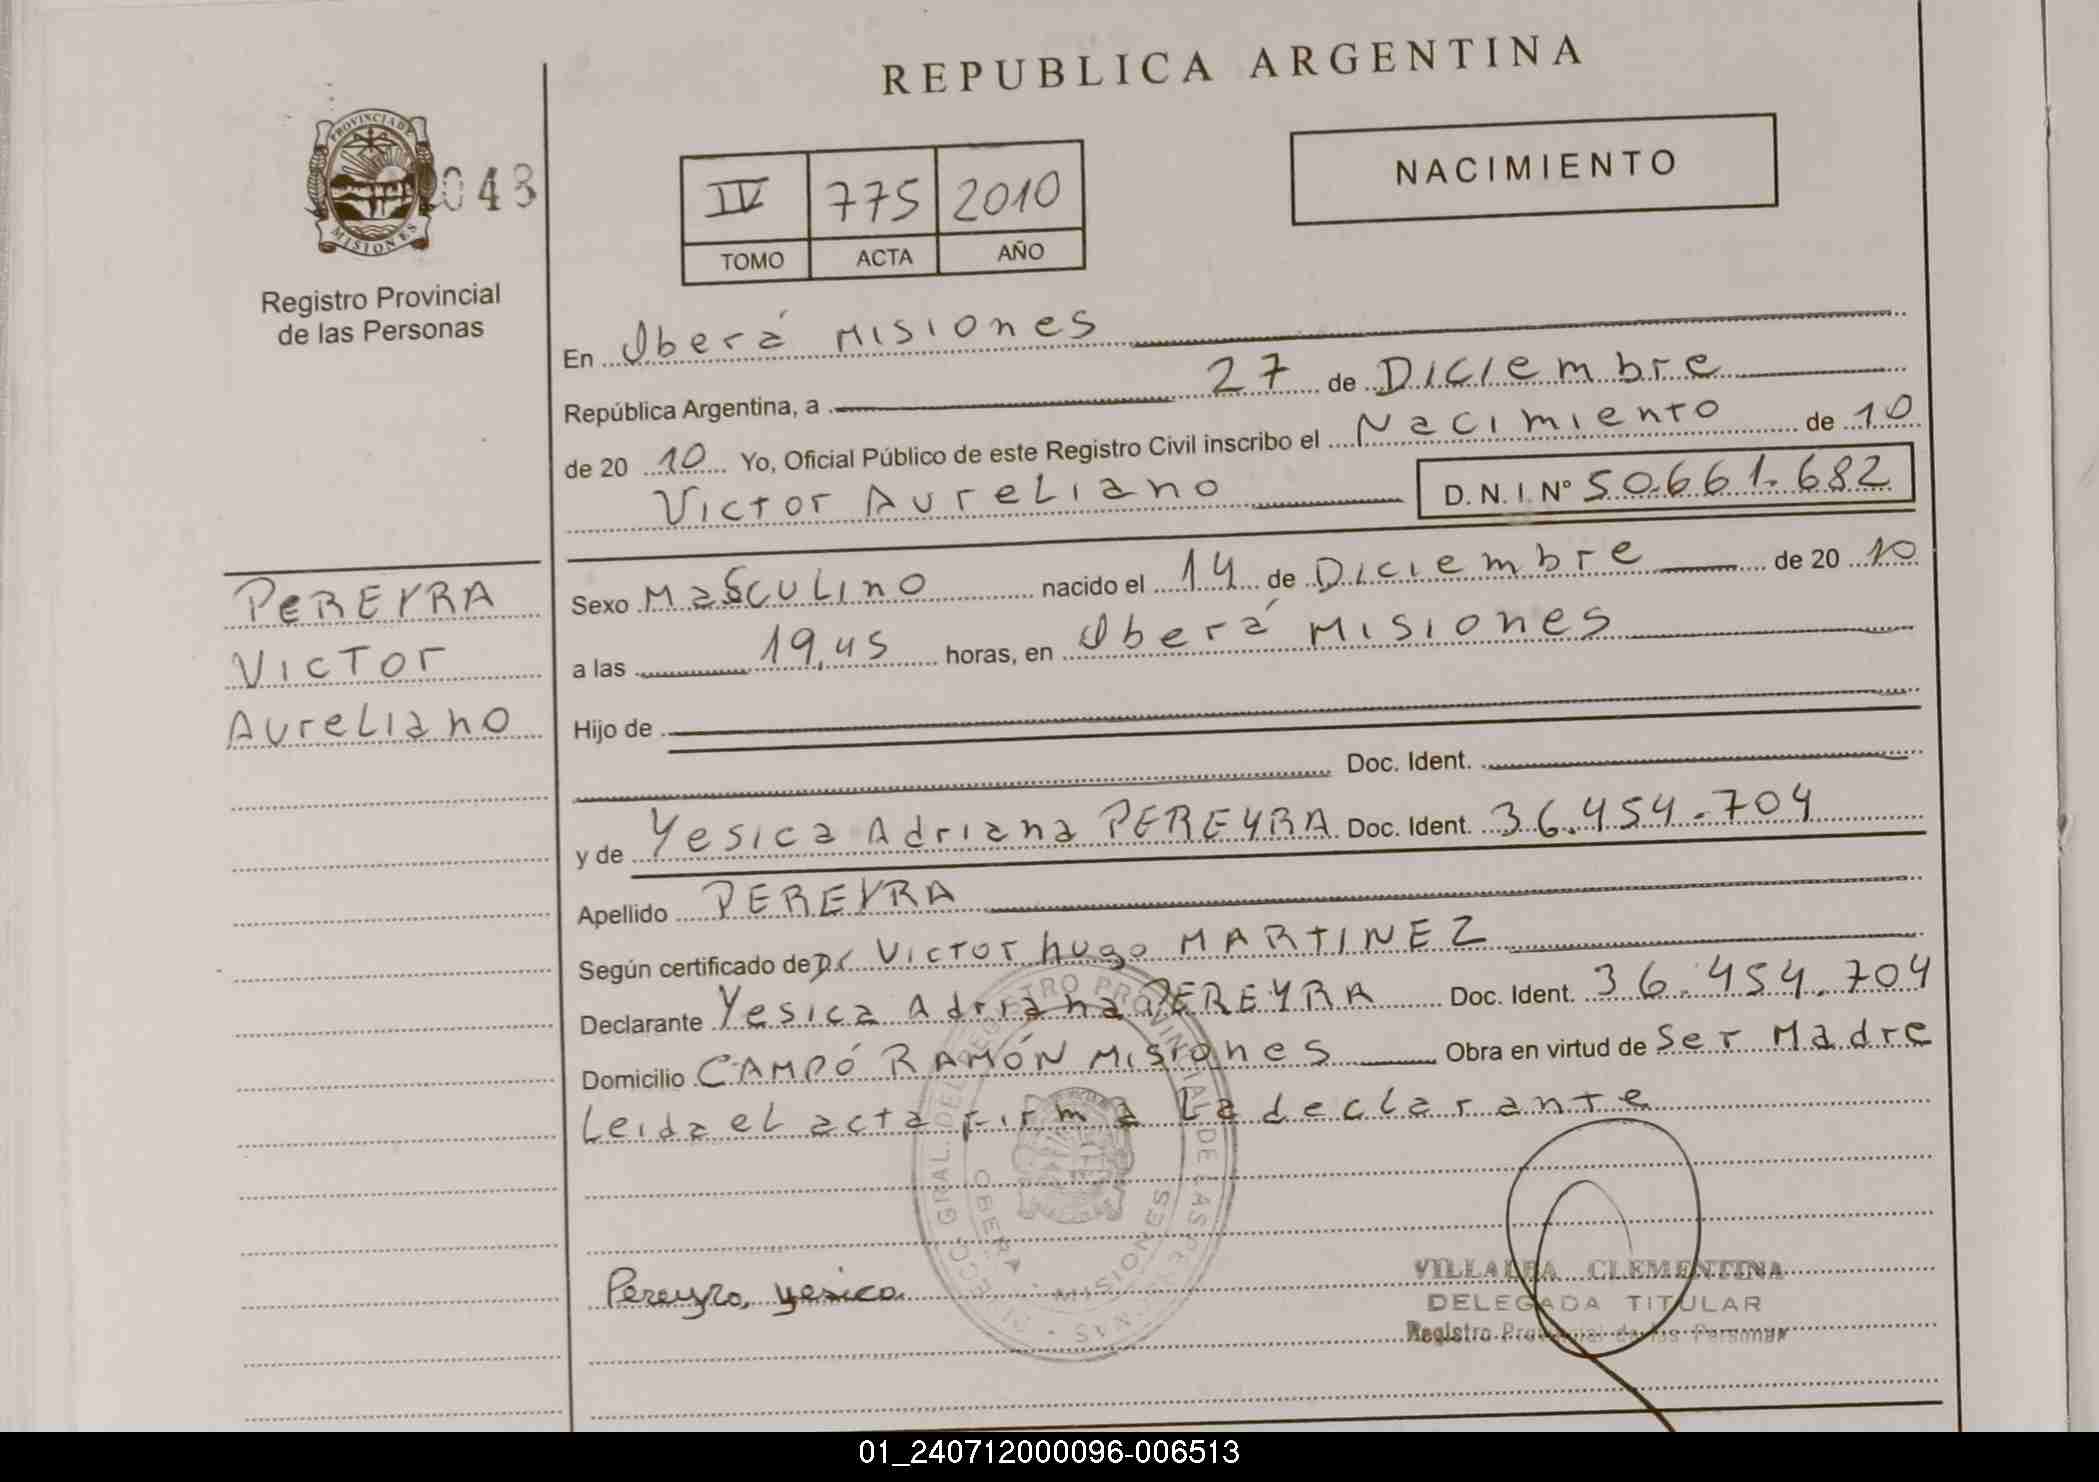 REPUBLICA ARGENTINA
PROVINCIA DE
MISIONES
043
Registro Provincial
de las Personas
IV 775 2010
TOMO ACTA AÑO
NACIMIENTO
En Oberá Misiones
República Argentina, a 27 de Diciembre
de 20 10 Yo, Oficial Público de este Registro Civil inscribo el Nacimiento de 10
Victor Aureliano D. N. I. Nº 50.661.682
PEREYRA
Victor
Aureliano
Sexo Masculino nacido el 14 de Diciembre de 20 10
a las 19,45 horas, en Oberá Misiones
Hijo de
Doc. Ident.
y de Yesica Adriana PEREYRA Doc. Ident. 36.454.704
Apellido PEREYRA
Según certificado de Dr Victor hugo MARTINEZ
Declarante Yesica Adriana PEREYRA Doc. Ident. 36.454.704
Domicilio CAMPÓ RAMÓN Misiones Obra en virtud de Ser Madre
Leida el acta firma La declarante
OBERA - MISIONES
Pereyra, yesica
VILLALBA CLEMENTINA
DELEGADA TITULAR
Registro Provincial de las Personas
01_240712000096-006513